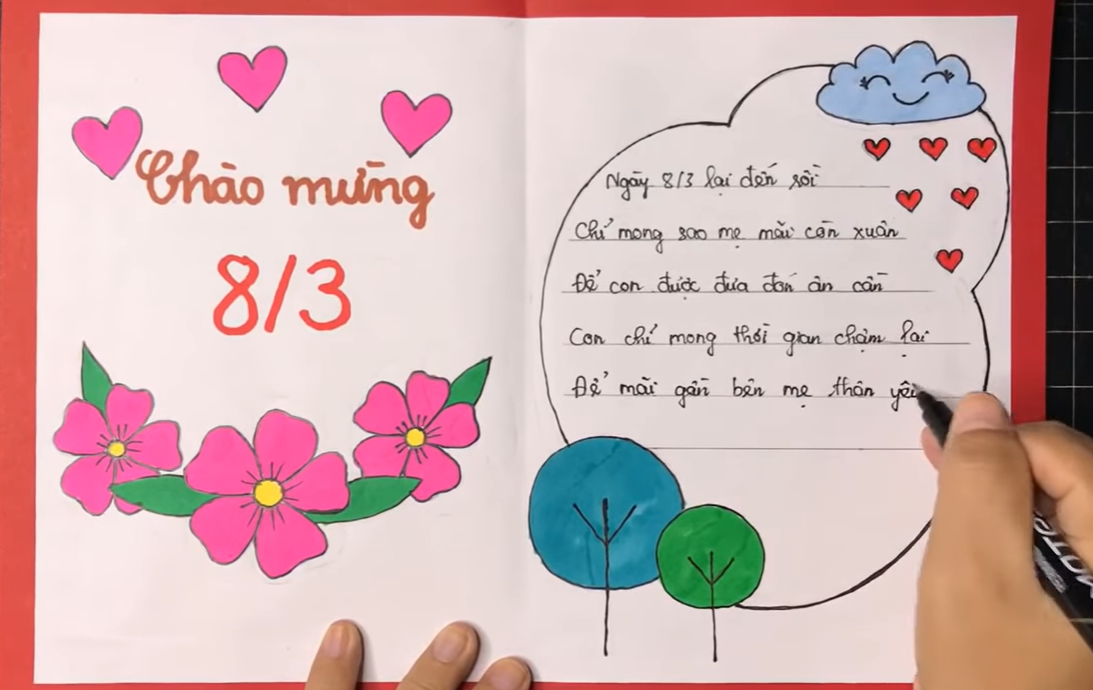 Chào mừng
8/3
Ngày 8/3 lại đến rồi
Chỉ mong sao mẹ mãi còn xuân
Để con được đưa đón ân cần
Con chỉ mong thời gian chậm lại
Để mãi gần bên mẹ thân yêu